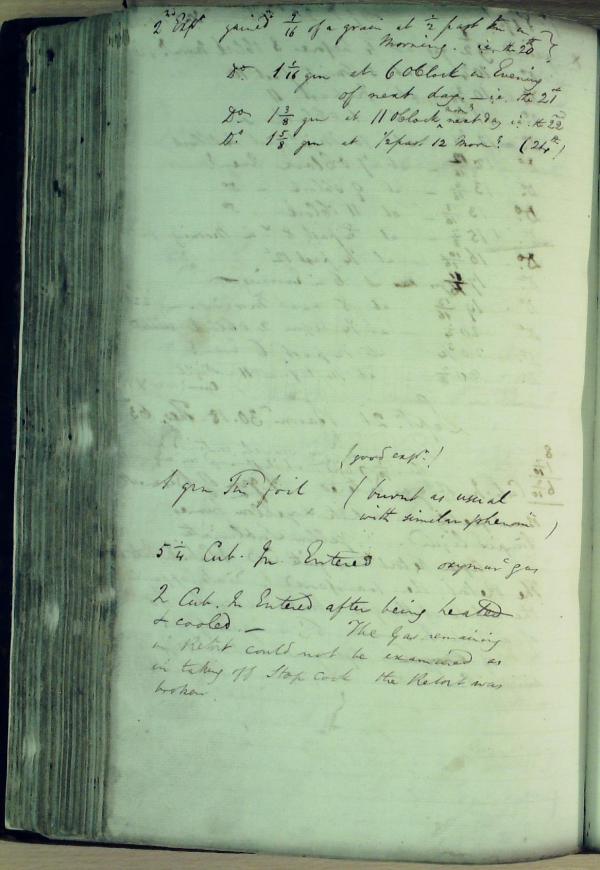 2nd Expt gained 9/16 of a grain at 1/2 past ten in
Morning. i.e. the 20th
Do 1 1/16 grn at 6 OClock in Evening
of next day – i.e. the 21st
Do 1 3/8 grn at 11 OClock next day i.e. the 22
Do 1 5/8 grn at 1/2 past 12 Morng (24th)
(good expt.)
1 grn Tin foil (burnt as usual
with similar phenomena)
5 1/4 Cub. In Entered oxymurc gas
2 Cub. In Entered after being heated
& cooled. – The Gas remaining
in Retort could not be examined as
in taking off Stop Cock the Retort was
broken